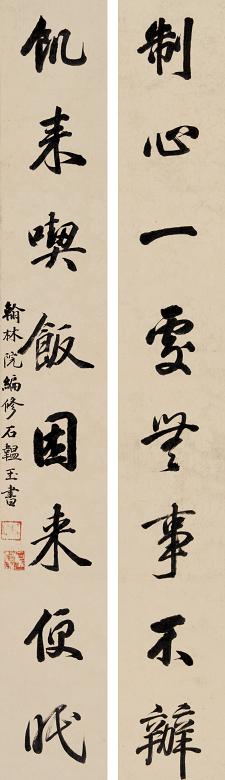 制心一處無事不辦
飢来喫飯困来便眠
翰林院編修石韞玉書